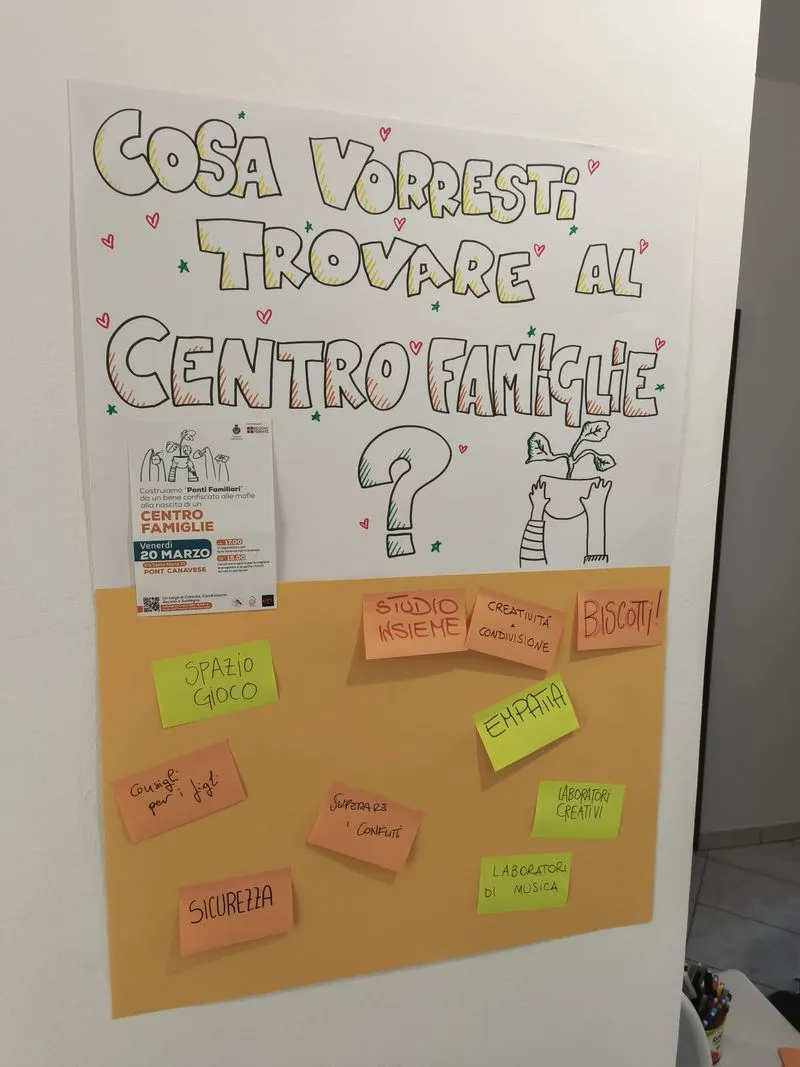 COSA VORRESTI
TROVARE AL
CENTRO FAMIGLIE
?
Costruiamo "Ponti Familiari"
da un bene confiscato alle mafie
alla nascita di un
CENTRO
FAMIGLIE
Venerdì
20 MARZO
PONT CANAVESE
17.00
18.00
STUDIO
INSIEME
CREATIVITÁ
E
CONDIVISIONE
BISCOTTI!
SPAZIO
GIOCO
EMPATIA
Consigli
per i figli
SUPERARE
I CONFLITTI
LABORATORI
CREATIVI
LABORATORI
DI MUSICA
SICUREZZA